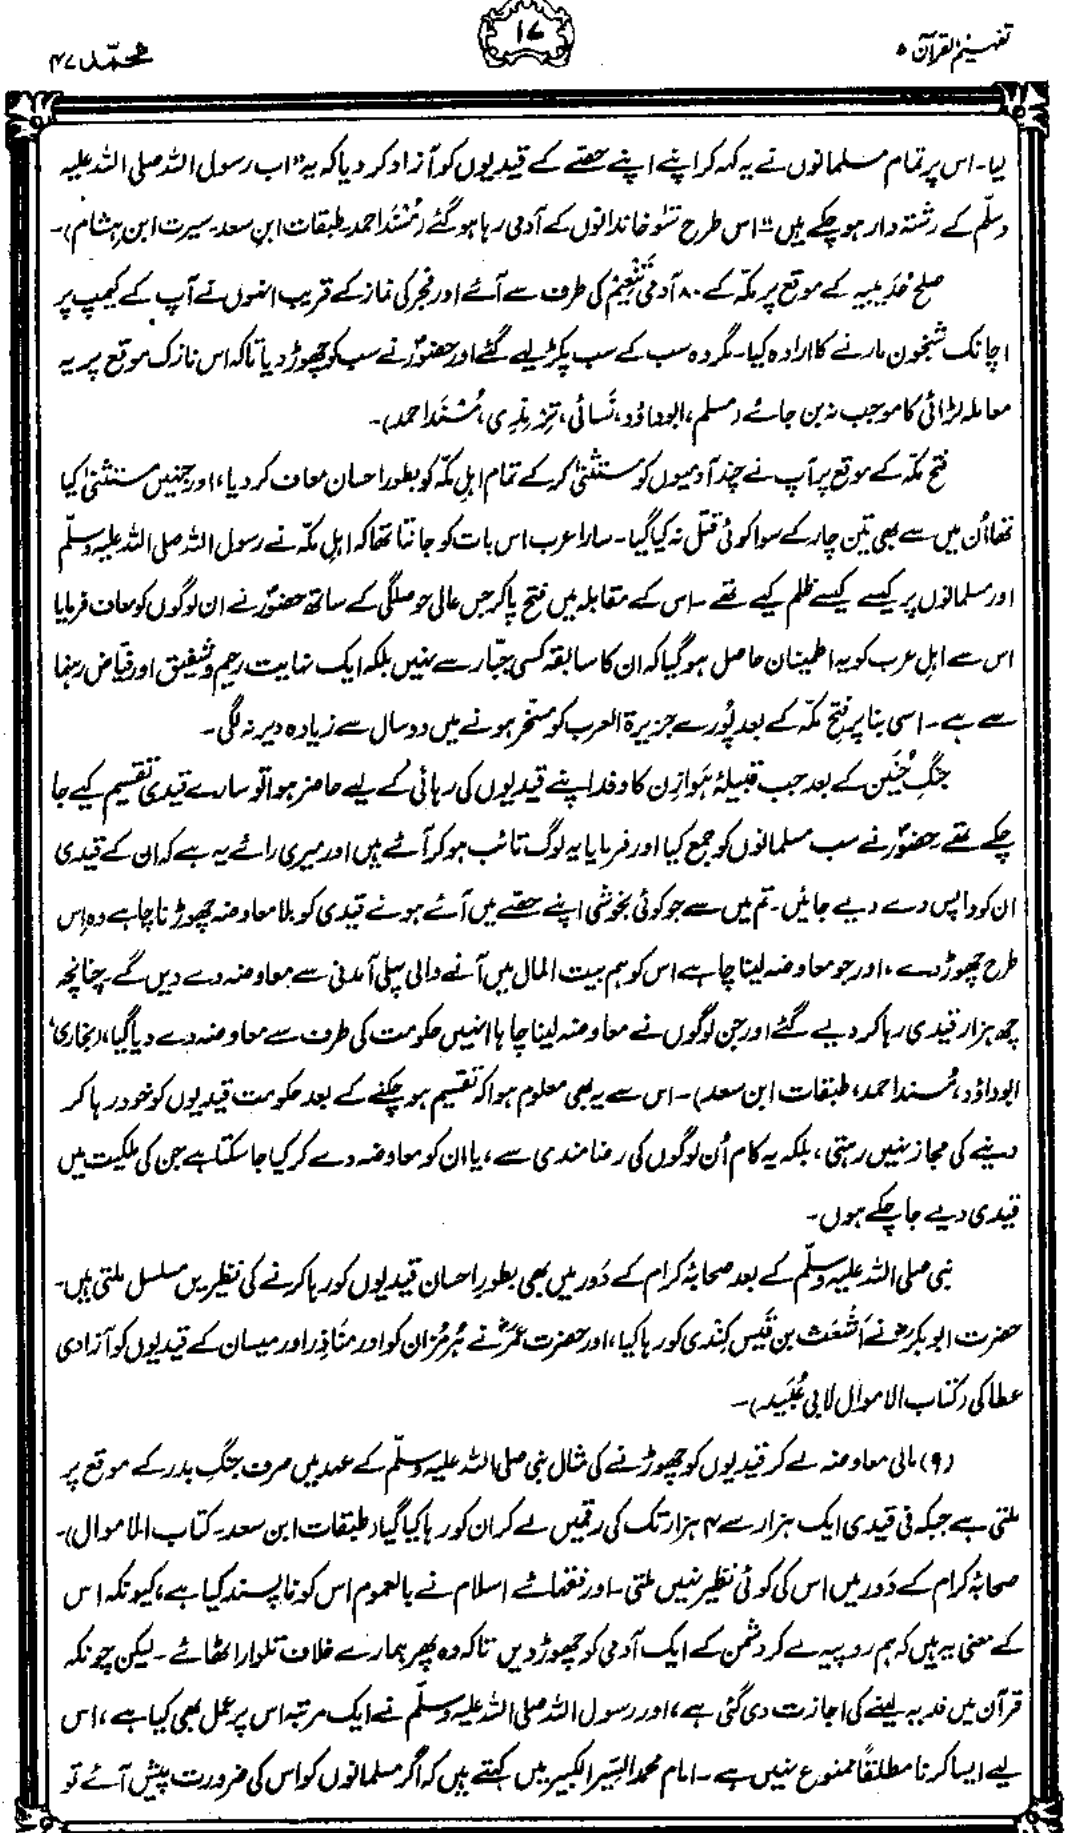 تفہیم القرآن ۵
۱۷
محمّد ۴۷
لیا۔ اس پر تمام مسلمانوں نے یہ کہہ کر اپنے اپنے حصّے کے قیدیوں کو آزاد کر دیا کہ یہ "اب رسول اللہ صلی اللہ علیہ
وسلّم کے رشتہ دار ہو چکے ہیں" اس طرح سَو خاندانوں کے آدمی رہا ہو گئے (مُسْنَد احمد۔ طبقات ابن سعد۔ سیرت ابن ہشام)۔
صلح حُدَیبیہ کے موقع پر مکّہ کے ۸۰ آدمی تَنْعِیْم کی طرف سے آئے اور فجر کی نماز کے قریب انہوں نے آپ کے کیمپ پر
اچانک شبخون مارنے کا ارادہ کیا۔ مگر وہ سب کے سب پکڑ لیے گئے اور حضورؐ نے سب کو چھوڑ دیا تاکہ اس نازک موقع پر یہ
معاملہ لڑائی کا موجب نہ بن جائے (مسلم، ابوداؤد، نَسائی، تِرْمِذی، مُسْنَد احمد)۔
فتح مکّہ کے موقع پر آپ نے چند آدمیوں کو مستثنیٰ کر کے تمام اہلِ مکّہ کو بطور احسان معاف کر دیا، اور جنہیں مستثنیٰ کیا
تھا اُن میں سے بھی تین چار کے سوا کوئی قتل نہ کیا گیا۔ سارا عرب اس بات کو جانتا تھا کہ اہل مکّہ نے رسول اللہ صلی اللہ علیہ وسلّم
اور مسلمانوں پر کیسے کیسے ظلم کیے تھے۔ اس کے مقابلہ میں فتح پا کر جس عالی حوصلگی کے ساتھ حضورؐ نے ان لوگوں کو معاف فرمایا
اس سے اہل عرب کو یہ اطمینان حاصل ہو گیا کہ ان کا سابقہ کسی جبّار سے نہیں بلکہ ایک نہایت رحیم و شفیق اور فیّاض رہنما
سے ہے۔ اسی بنا پر فتح مکّہ کے بعد پُورے جزیرۃ العرب کو مسخّر ہونے میں دو سال سے زیادہ دیر نہ لگی۔
جنگِ حُنَین کے بعد جب قبیلۂ ہَوازِن کا وفد اپنے قیدیوں کی رہائی کے لیے حاضر ہوا تو سارے قیدی تقسیم کیے جا
چکے تھے۔ حضورؐ نے سب مسلمانوں کو جمع کیا اور فرمایا یہ لوگ تائب ہو کر آئے ہیں اور میری رائے یہ ہے کہ ان کے قیدی
ان کو واپس دے دیے جائیں۔ تم میں سے جو کوئی بخوشی اپنے حصّے میں آئے ہوئے قیدی کو بلا معاوضہ چھوڑنا چاہے وہ اِس
طرح چھوڑ دے، اور جو معاوضہ لینا چاہے اس کو ہم بیت المال میں آنے والی پہلی آمدنی سے معاوضہ دے دیں گے۔ چنانچہ
چھ ہزار قیدی رہا کر دیے گئے اور جن لوگوں نے معاوضہ لینا چاہا انہیں حکومت کی طرف سے معاوضہ دے دیا گیا، (بخاری،
ابوداؤد، مُسند احمد، طبقات ابن سعد)۔ اس سے یہ بھی معلوم ہوا کہ تقسیم ہو چکنے کے بعد حکومت قیدیوں کو خود رہا کر
دینے کی مجاز نہیں رہتی، بلکہ یہ کام اُن لوگوں کی رضامندی سے، یا ان کو معاوضہ دے کر کیا جا سکتا ہے جن کی ملکیت میں
قیدی دیے جا چکے ہوں۔
نبی صلی اللہ علیہ وسلّم کے بعد صحابۂ کرام کے دَور میں بھی بطورِ احسان قیدیوں کو رہا کرنے کی نظیریں مسلسل ملتی ہیں۔
حضرت ابوبکرؓ نے اَشْعَث بن قَیس کِندی کو رہا کیا، اور حضرت عمرؓ نے ہُرمُزان کو اور مَنَاذِر اور میسان کے قیدیوں کو آزادی
عطا کی (کتاب الاموال لابی عُبَید)۔
(۹) مالی معاوضہ لے کر قیدیوں کو چھوڑنے کی مثال نبی صلی اللہ علیہ وسلّم کے عہد میں صرف جنگِ بدر کے موقع پر
ملتی ہے جبکہ فی قیدی ایک ہزار سے ۴ ہزار تک کی رقمیں لے کر ان کو رہا کیا گیا (طبقات ابن سعد۔ کتاب الاموال)۔
صحابۂ کرام کے دَور میں اس کی کوئی نظیر نہیں ملتی۔ اور فقہائے اسلام نے بالعموم اس کو ناپسند کیا ہے، کیونکہ اس
کے معنی یہ ہیں کہ ہم روپیہ لے کر دشمن کے ایک آدمی کو چھوڑ دیں تاکہ وہ پھر ہمارے خلاف تلوار اٹھائے۔ لیکن چونکہ
قرآن میں فدیہ لینے کی اجازت دی گئی ہے، اور رسول اللہ صلی اللہ علیہ وسلّم نے ایک مرتبہ اس پر عمل بھی کیا ہے، اس
لیے ایسا کرنا مطلقًا ممنوع نہیں ہے۔ امام محمد السِّیَر الکبیر میں کہتے ہیں کہ اگر مسلمانوں کو اس کی ضرورت پیش آئے تو